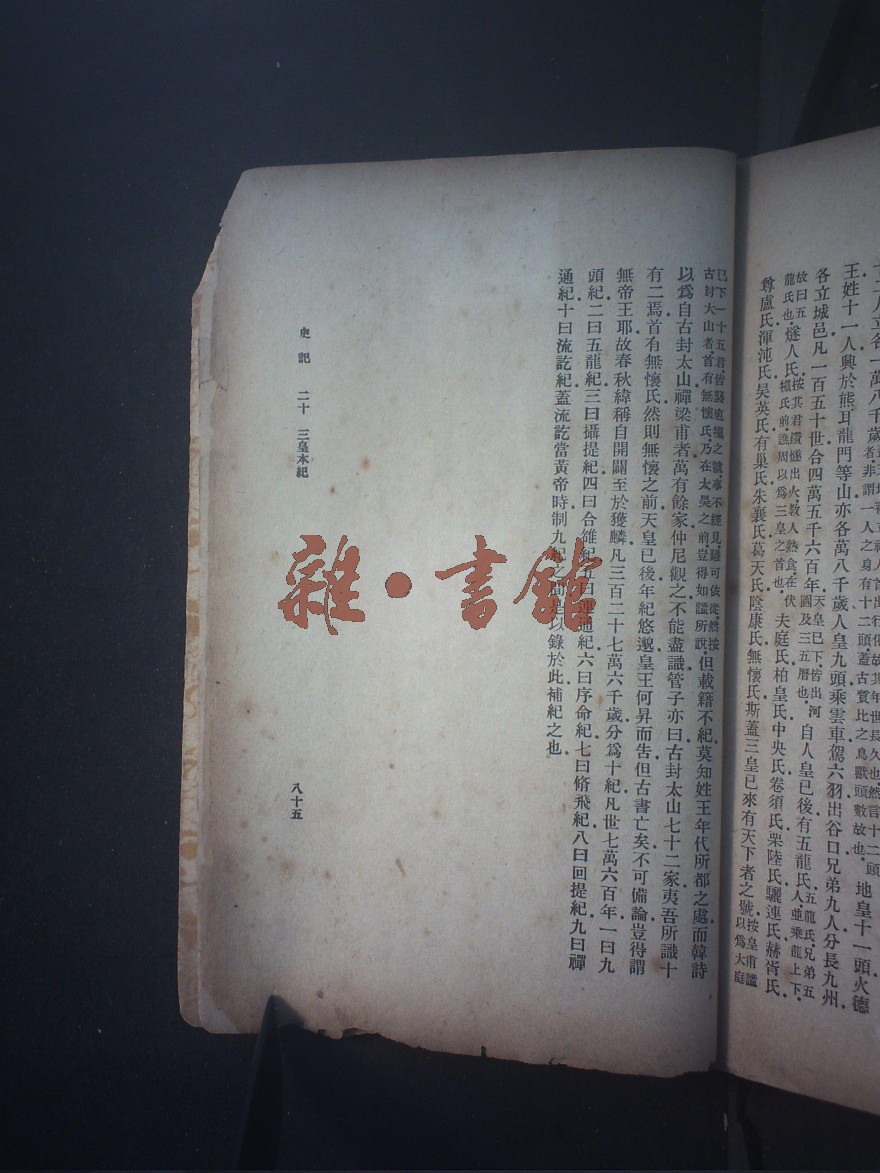 十二人立各一萬八千歲
王姓十一人興於熊耳龍門等山亦各萬八千歲人皇九頭乘雲車駕六羽出谷口兄弟九人分長九州
各立城邑凡一百五十世合四萬五千六百年天皇已下皆出河圖及三五曆也自人皇已後有五龍氏五龍氏兄弟五人並乘龍上下
故曰五龍氏也燧人氏按其君鑽燧出火教人熟食在伏犧氏前譙周以爲三皇之首也夫庭氏柏皇氏中央氏卷須氏栗陸氏驪連氏赫胥氏
尊盧氏渾沌氏昊英氏有巢氏朱襄氏葛天氏陰康氏無懷氏斯蓋三皇已來有天下者之號按皇甫謐以爲大庭
已下一十五君皆襲庖犧之號事不經見難可依從然按古封太山者首有無懷氏乃在太昊之前豈得如謐所說但載籍不紀莫知姓王年代所都之處而韓詩
以爲自古封太山禪梁甫者萬有餘家仲尼觀之不能盡識管子亦曰古封太山七十二家夷吾所識十
有二焉首有無懷氏然則無懷之前天皇已後年紀悠邈皇王何昇而告但古書亡矣不可備論豈得謂
無帝王耶故春秋緯稱自開闢至於獲麟凡三百二十七萬六千歲分爲十紀凡世七萬六百年一曰九
頭紀二曰五龍紀三曰攝提紀四曰合雒紀五曰連通紀六曰序命紀七曰脩飛紀八曰回提紀九曰禪
通紀十曰流訖紀蓋流訖當黃帝時制九紀之間是以錄於此補紀之也
史記 二十 三皇本紀
八十五
雜·書館